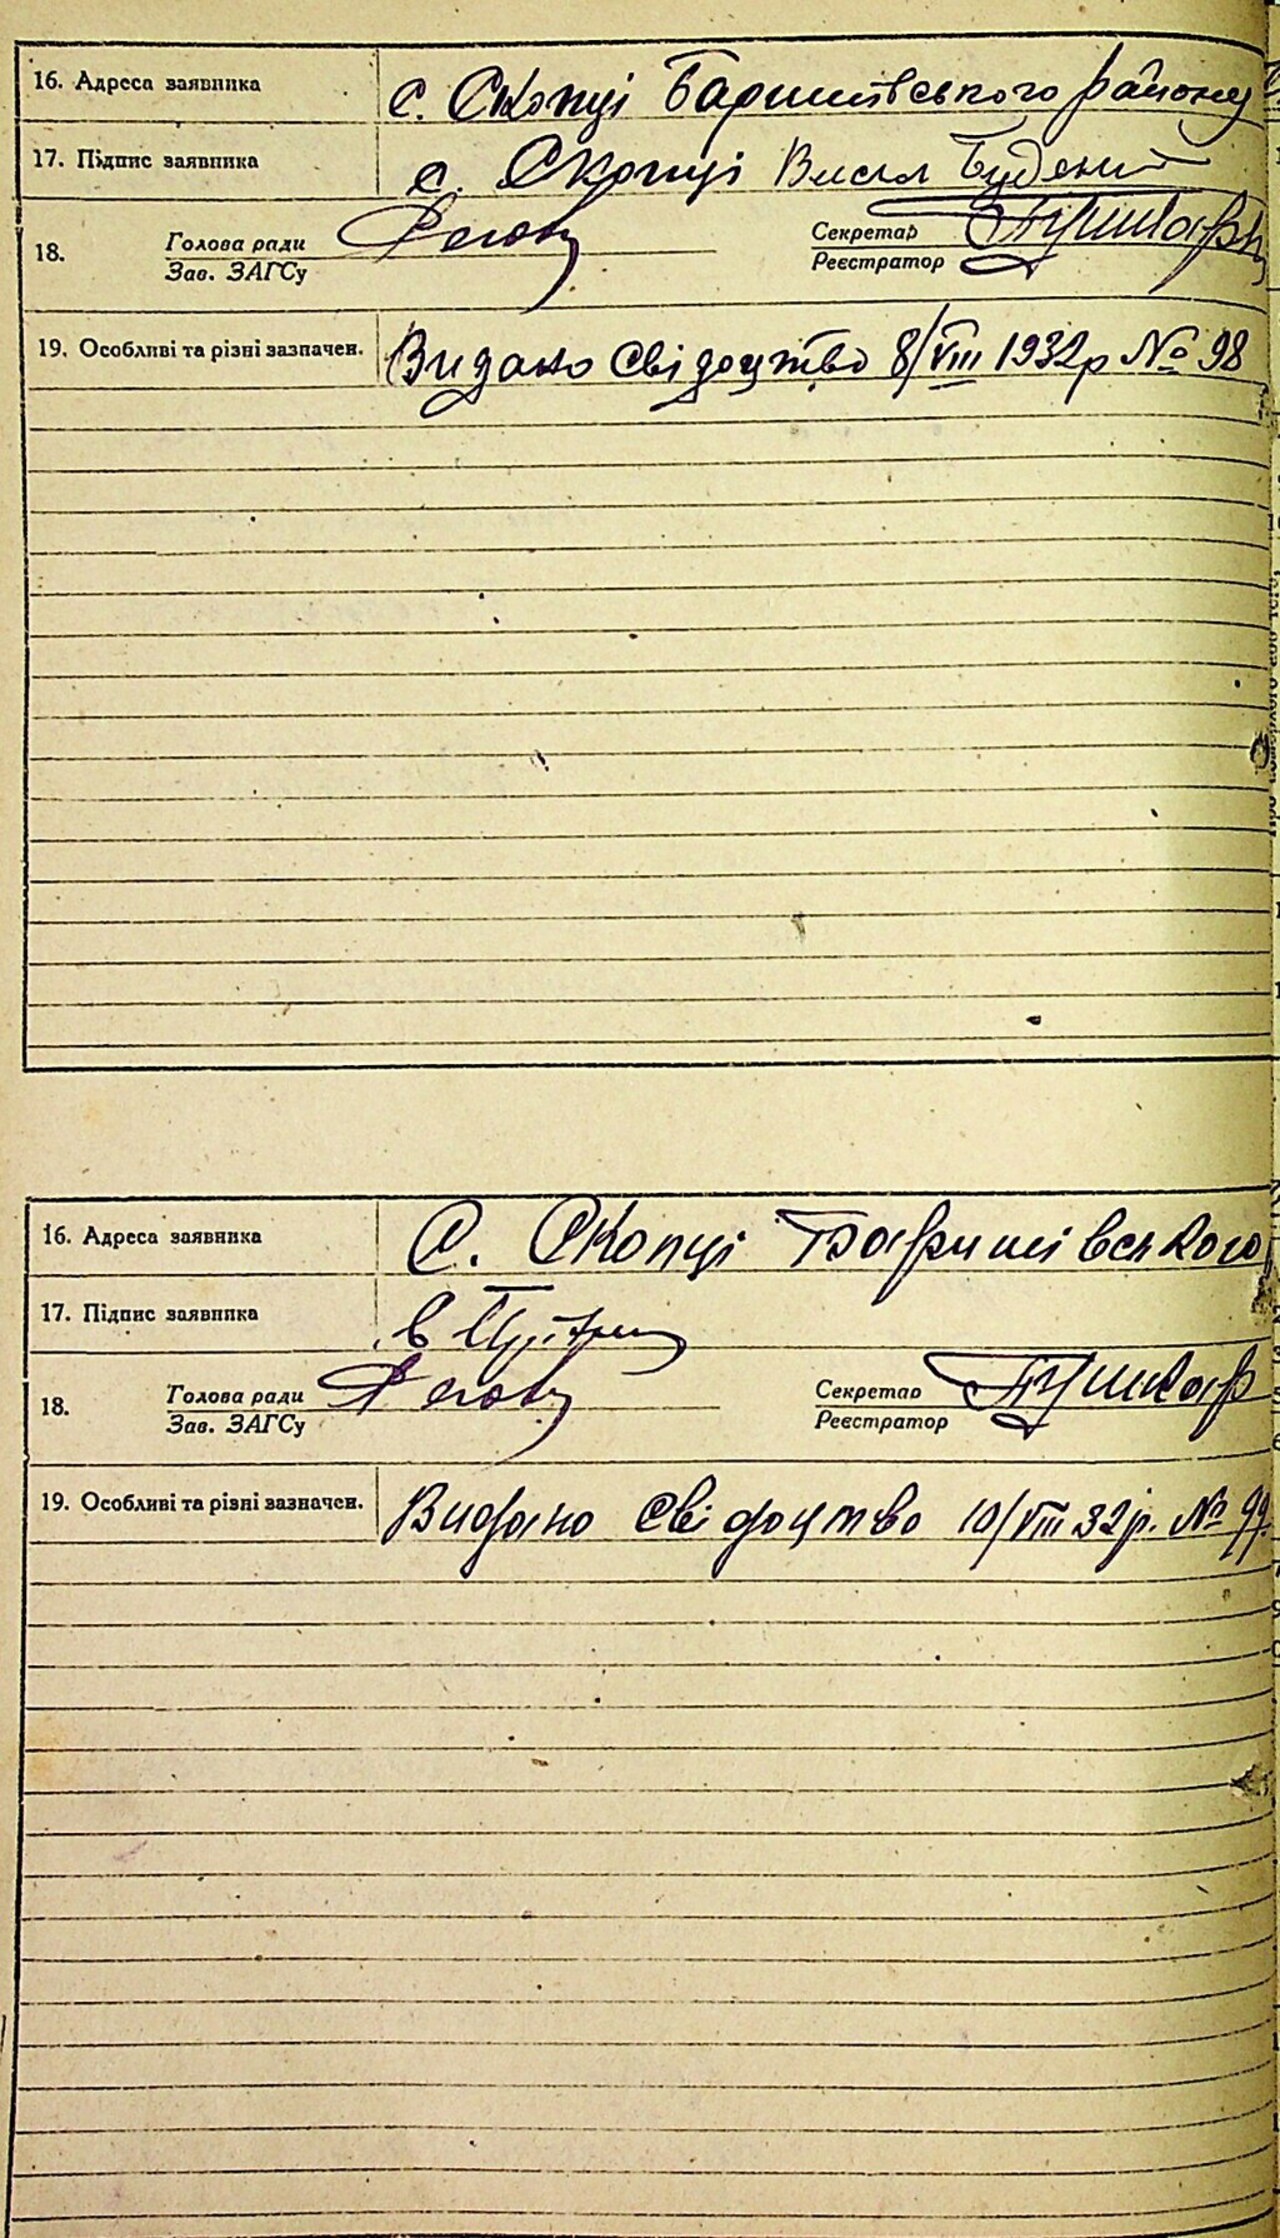 16. Адреса заявника с. Скопці Баришівського району
17. Підпис заявника с. Скопці Буденит
18. Голова ради Секретар Пушкарь
Зав. ЗАГСу Реєстратор
19. Особливі та різні зазначен. Видано свідоцтво 8/VIII 1932р № 98
16. Адреса заявника С. Скопці Баришівського
17. Підпис заявника
18. Голова ради Секретар Пушкар
Зав. ЗАГСу Реєстратор
19. Особливі та різні зазначен. Видано свідоцтво 10/VIII 32р. № 99.